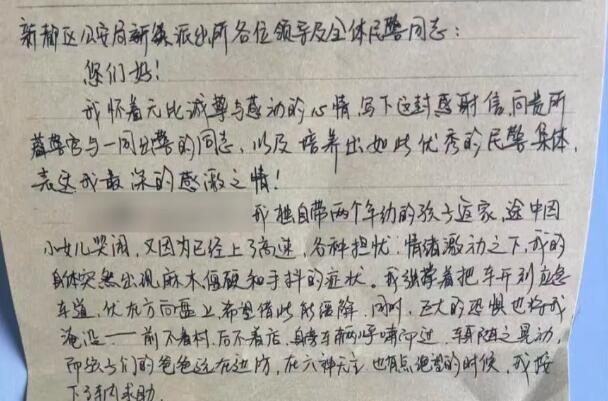 新都区公安局新繁派出所各位领导及全体民警同志:
您们好!
我怀着无比诚挚与感动的心情,写下这封感谢信,向贵所
警官与一同出警的同志,以及培养出如此优秀的民警集体,
表达我最深的感激之情!
我独自带两个年幼的孩子返家,途中因
小女儿哭闹,又因为已经上了高速,各种担忧,情绪激动之下,我的
身体突然出现麻木僵硬和手抖的症状。我强撑着把车开到应急
车道,伏在方向盘上,希望借此能缓解。同时,巨大的恐惧也将我
淹没——前不着村,后不着店,身旁车辆呼啸而过,车身随之晃动,
而孩子们的爸爸远在边防,在六神无主也有点绝望的时候,我按
下了车内求助